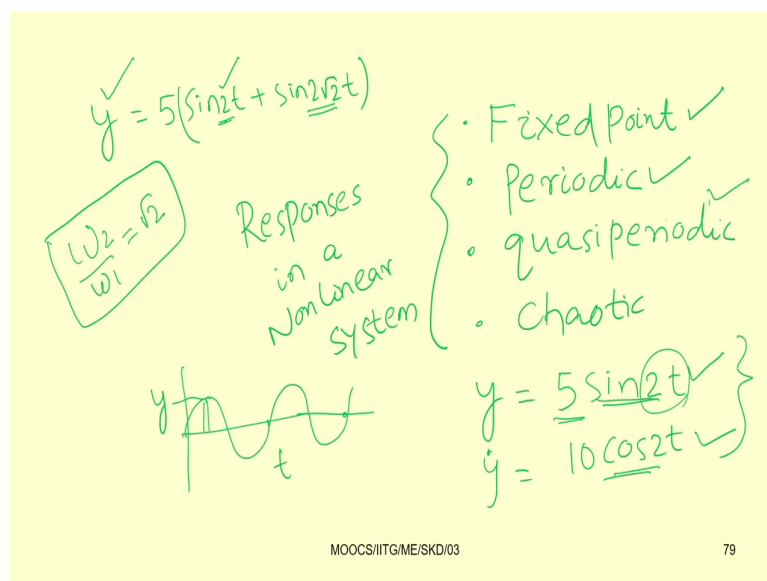 y = 5(sin2t + sin2√2t)
ω2/ω1 = √2
Responses
in a
Nonlinear
system
• Fixed Point
• Periodic
• quasiperiodic
• Chaotic
y
t
y = 5 sin2t
ẏ = 10 cos2t
MOOCS/IITG/ME/SKD/03
79